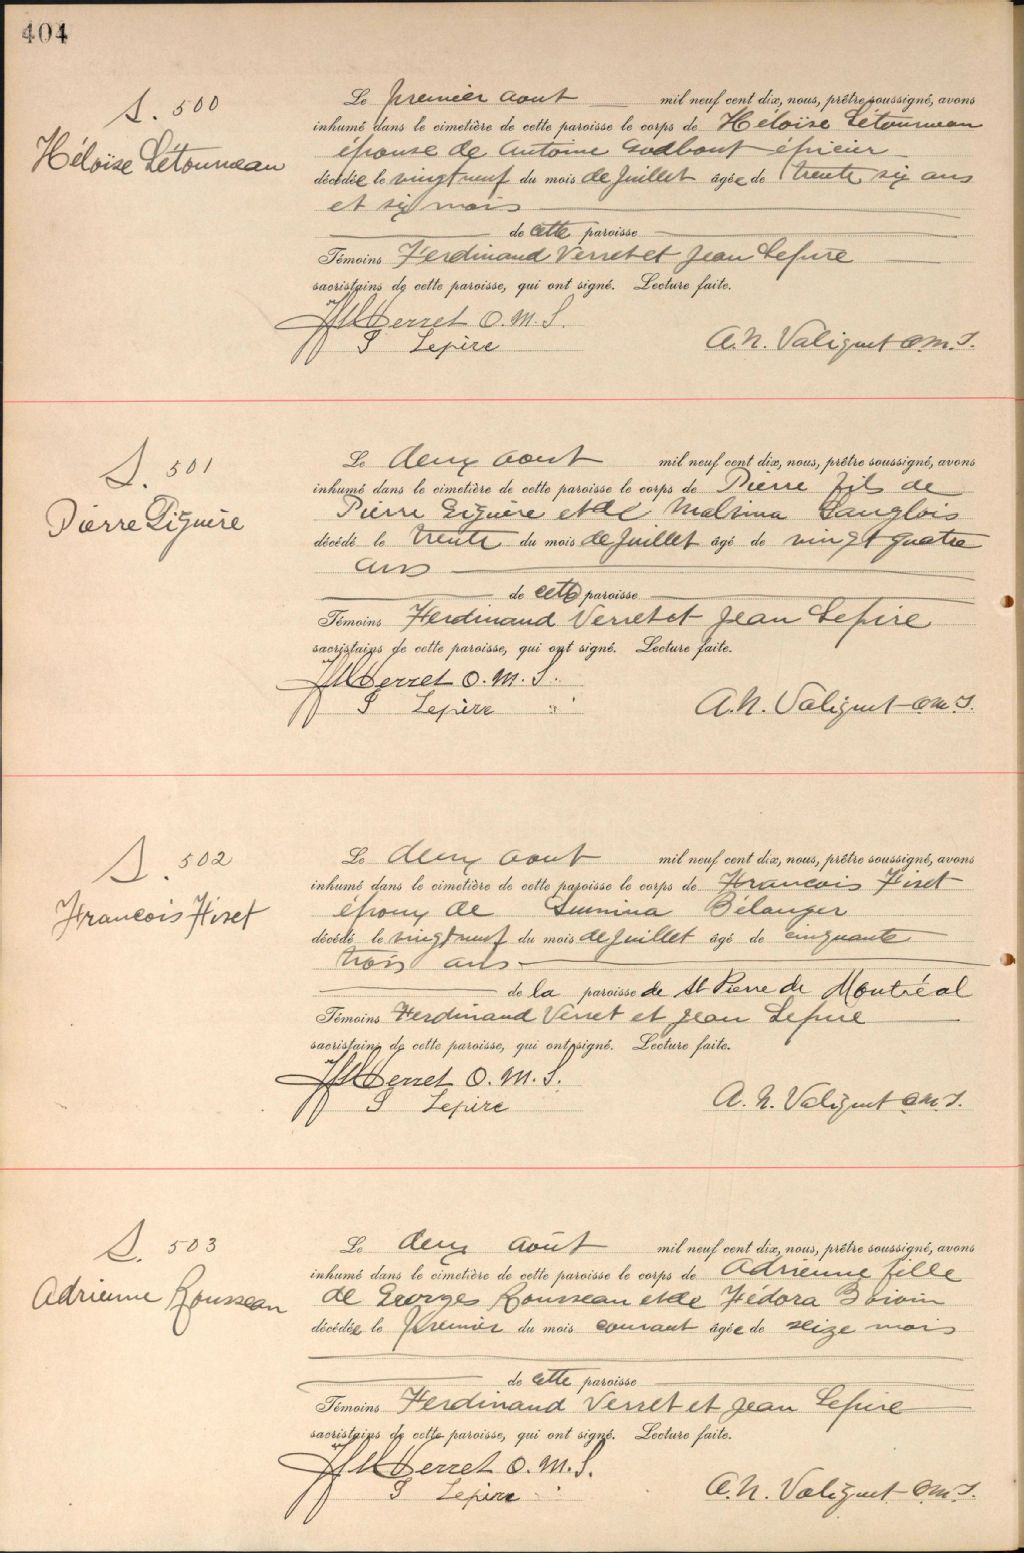 404
S. 500
Héloïse Létourneau
Le premier aout mil neuf cent dix, nous, prêtre soussigné, avons
inhumé dans le cimetière de cette paroisse le corps de Héloïse Létourneau
épouse de Antoine Godbout épicier
décédée le vingt neuf du mois de Juillet âgée de trente six ans
et six mois
de cette paroisse
Témoins Ferdinand Verret et Jean Lepire
sacristains de cette paroisse, qui ont signé. Lecture faite.
Verret O.M.I.
J Lepire
A.N. Valiquet O.M.I.
S. 501
Pierre Giguère
Le deux aout mil neuf cent dix, nous, prêtre soussigné, avons
inhumé dans le cimetière de cette paroisse le corps de Pierre fils de
Pierre Giguère et de Malvina Langlois
décédé le trente du mois de Juillet âgé de vingt quatre
ans
de cette paroisse
Témoins Ferdinand Verret et Jean Lepire
sacristains de cette paroisse, qui ont signé. Lecture faite.
Verret O.M.I.
J Lepire " "
A.N. Valiquet O.M.I.
S. 502
Francois Fiset
Le deux aout mil neuf cent dix, nous, prêtre soussigné, avons
inhumé dans le cimetière de cette paroisse le corps de Francois Fiset
époux de Bélanger
décédé le vingt neuf du mois de Juillet âgé de cinquante
trois ans
de la paroisse de St Pierre de Montréal
Témoins Ferdinand Verret et Jean Lepire
sacristains de cette paroisse, qui ont signé. Lecture faite.
Verret O.M.I.
J Lepire
A.N. Valiquet O.M.I.
S. 503
Adrienne Rousseau
Le deux août mil neuf cent dix, nous, prêtre soussigné, avons
inhumé dans le cimetière de cette paroisse le corps de Adrienne fille
de Georges Rousseau et de Fédora Boivin
décédée le premier du mois courant âgée de seize mois
de cette paroisse
Témoins Ferdinand Verret et Jean Lepire
sacristains de cette paroisse, qui ont signé. Lecture faite.
Verret O.M.I.
J Lepire " "
A.N. Valiquet O.M.I.